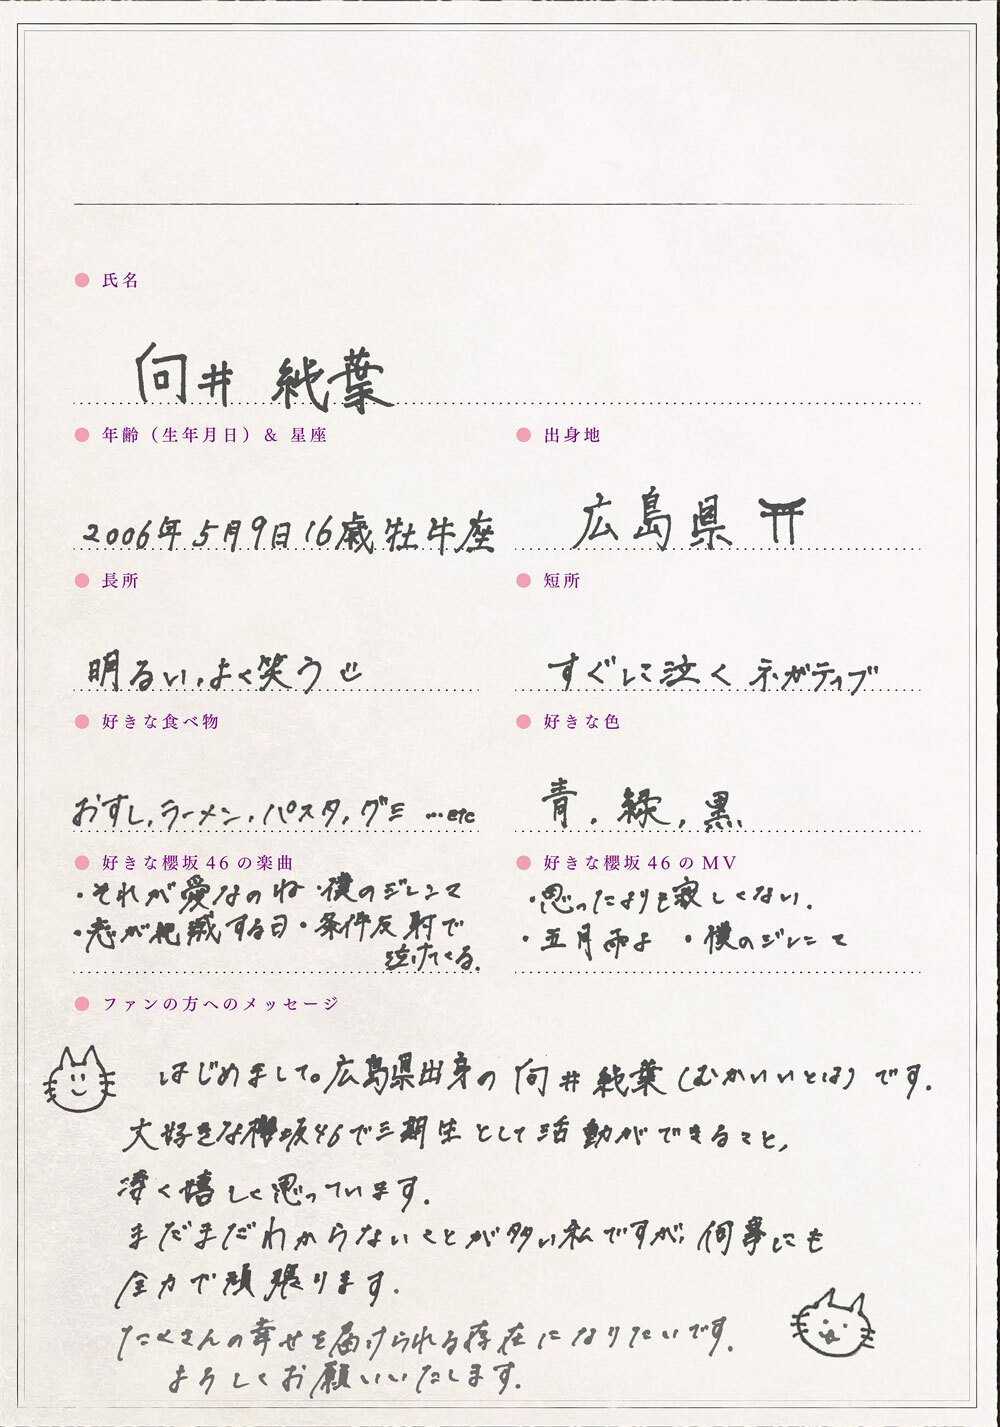 氏名
向井 純葉
年齢（生年月日）& 星座
2006年5月9日16歳 牡牛座
出身地
広島県
長所
明るい、よく笑う
短所
すぐに泣く ネガティブ
好きな食べ物
おすし、ラーメン、パスタ、グミ …etc
好きな色
青、緑、黒
好きな櫻坂46の楽曲
・それが愛なのね ・僕のジレンマ
・恋が絶滅する日 ・条件反射で
泣けてくる。
好きな櫻坂46のMV
・思ったよりも寂しくない。
・五月雨よ ・僕のジレンマ
ファンの方へのメッセージ
はじめまして。広島県出身の 向井純葉（むかいいとは）です。
大好きな櫻坂46で三期生として活動ができること、
凄く嬉しく思っています。
まだまだわからないことが多い私ですが、何事にも
全力で頑張ります。
たくさんの幸せを届けられる存在になりたいです。
よろしくお願いいたします。